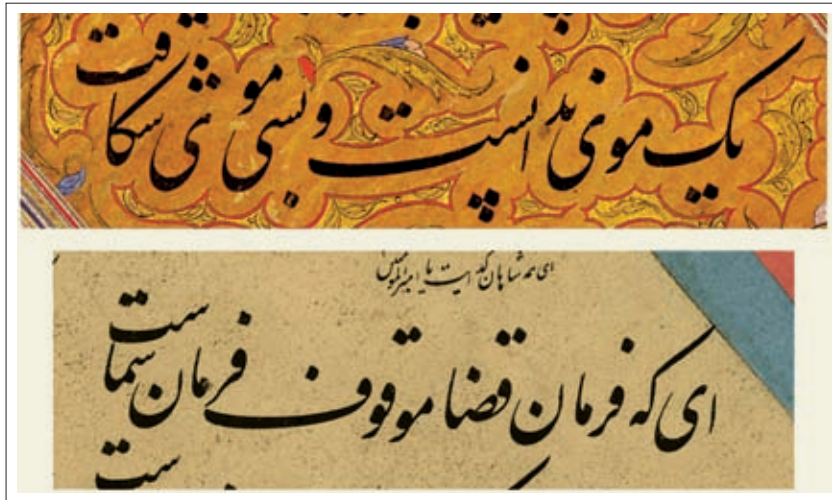 یک موی ندانست و بسی موی شکافت
ای همه شاهان گدایت یا امیرالمومنین
ای که فرمان قضا موقوف فرمان شماست